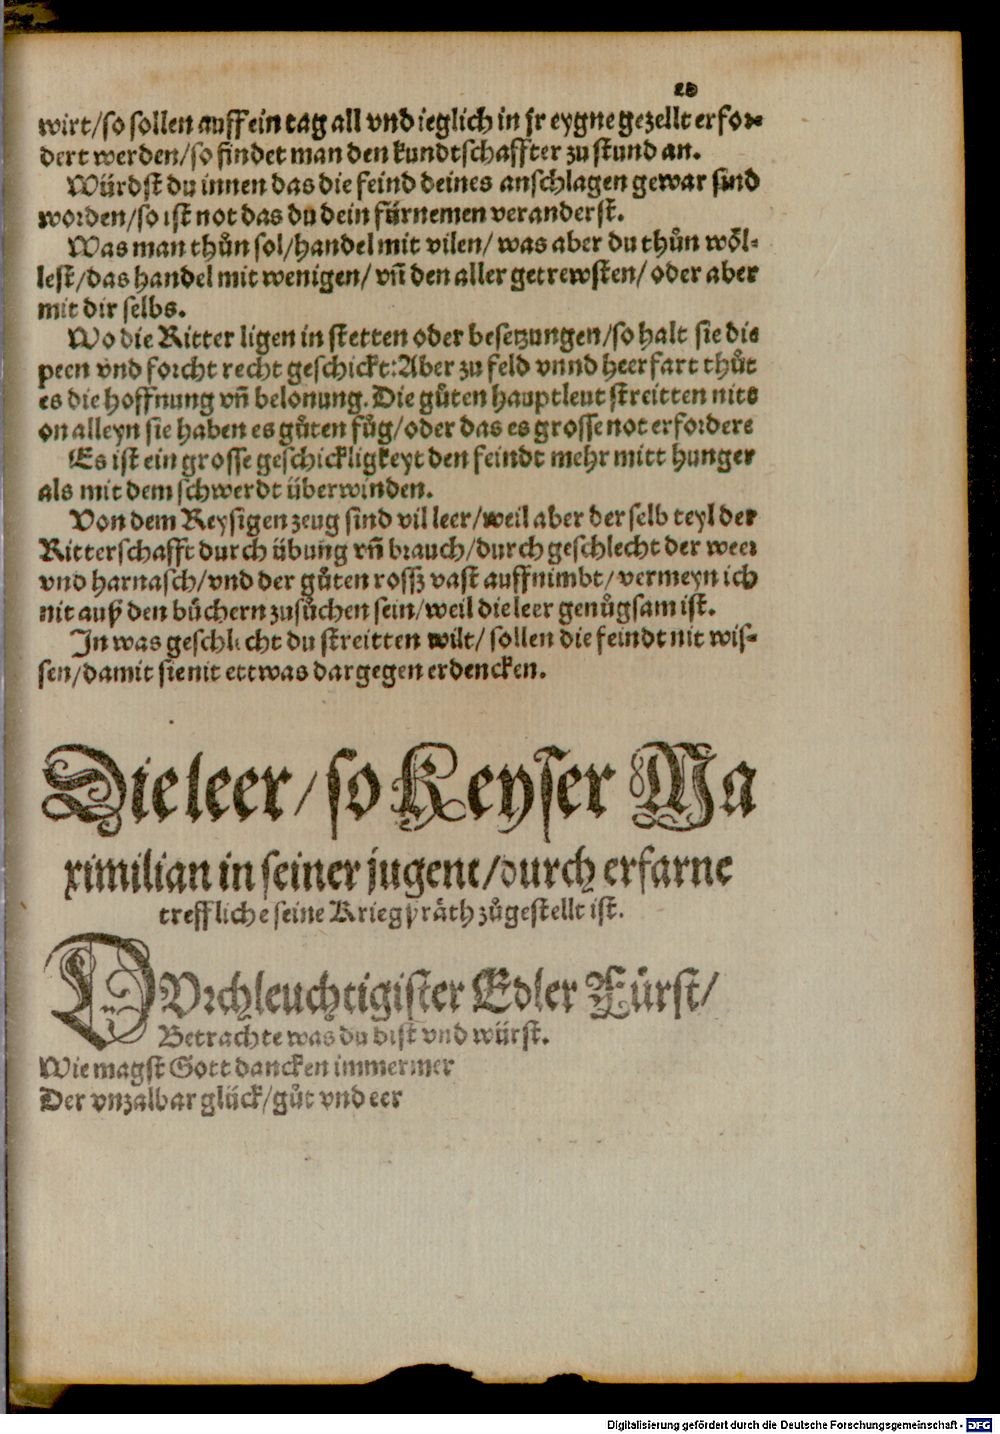 wirt/so sollen auff ein tag all vnd ieglich in jr eygne gezellt erfor-
dert werden/so findet man den kundtschaffter zu stund an.
Würdst du innen das die feind deines anschlagen gewar sind
worden/so ist not das du dein fürnemen veranderst.
Was man thůn sol/handel mit vilen/ was aber du thůn wöl-
lest/das handel mit wenigen/ vñ den aller getrewsten/ oder aber
mit dir selbs.
Wo die Ritter ligen in stetten oder besetzungen/so halt sie die
peen vnd forcht recht geschickt: Aber zu feld vnnd heerfart thůt
es die hoffnung vñ belonung. Die gůten hauptleut streitten nits
on alleyn sie haben es gůten fůg/oder das es grosse not erfordere
Es ist ein grosse geschickligkeyt den feindt mehr mitt hunger
als mit dem schwerdt überwinden.
Von dem Reysigen zeug sind vil leer/weil aber der selb teyl der
Ritterschafft durch übung vñ brauch/durch geschlecht der weer
vnd harnasch/vnd der gůten rossz vast auffnimbt/ vermeyn ich
nit auß den bůchern zusůchen sein/weil die leer genůgsam ist.
In was geschlecht du streitten wilt/ sollen die feindt nit wis-
sen/damit sie nit ettwas dargegen erdencken.
Die leer/ so Keyser Ma
ximilian in seiner jugent/durch erfarne
treffliche seine Kriegßräth zůgestellt ist.
DVrchleuchtigister Edler Fürst/
Betrachte was du bist vnd würst.
Wie magst Gott dancken immermer
Der vnzalbar glück/gůt vnd eer
Digitalisierung gefördert durch die Deutsche Forschungsgemeinschaft - DFG